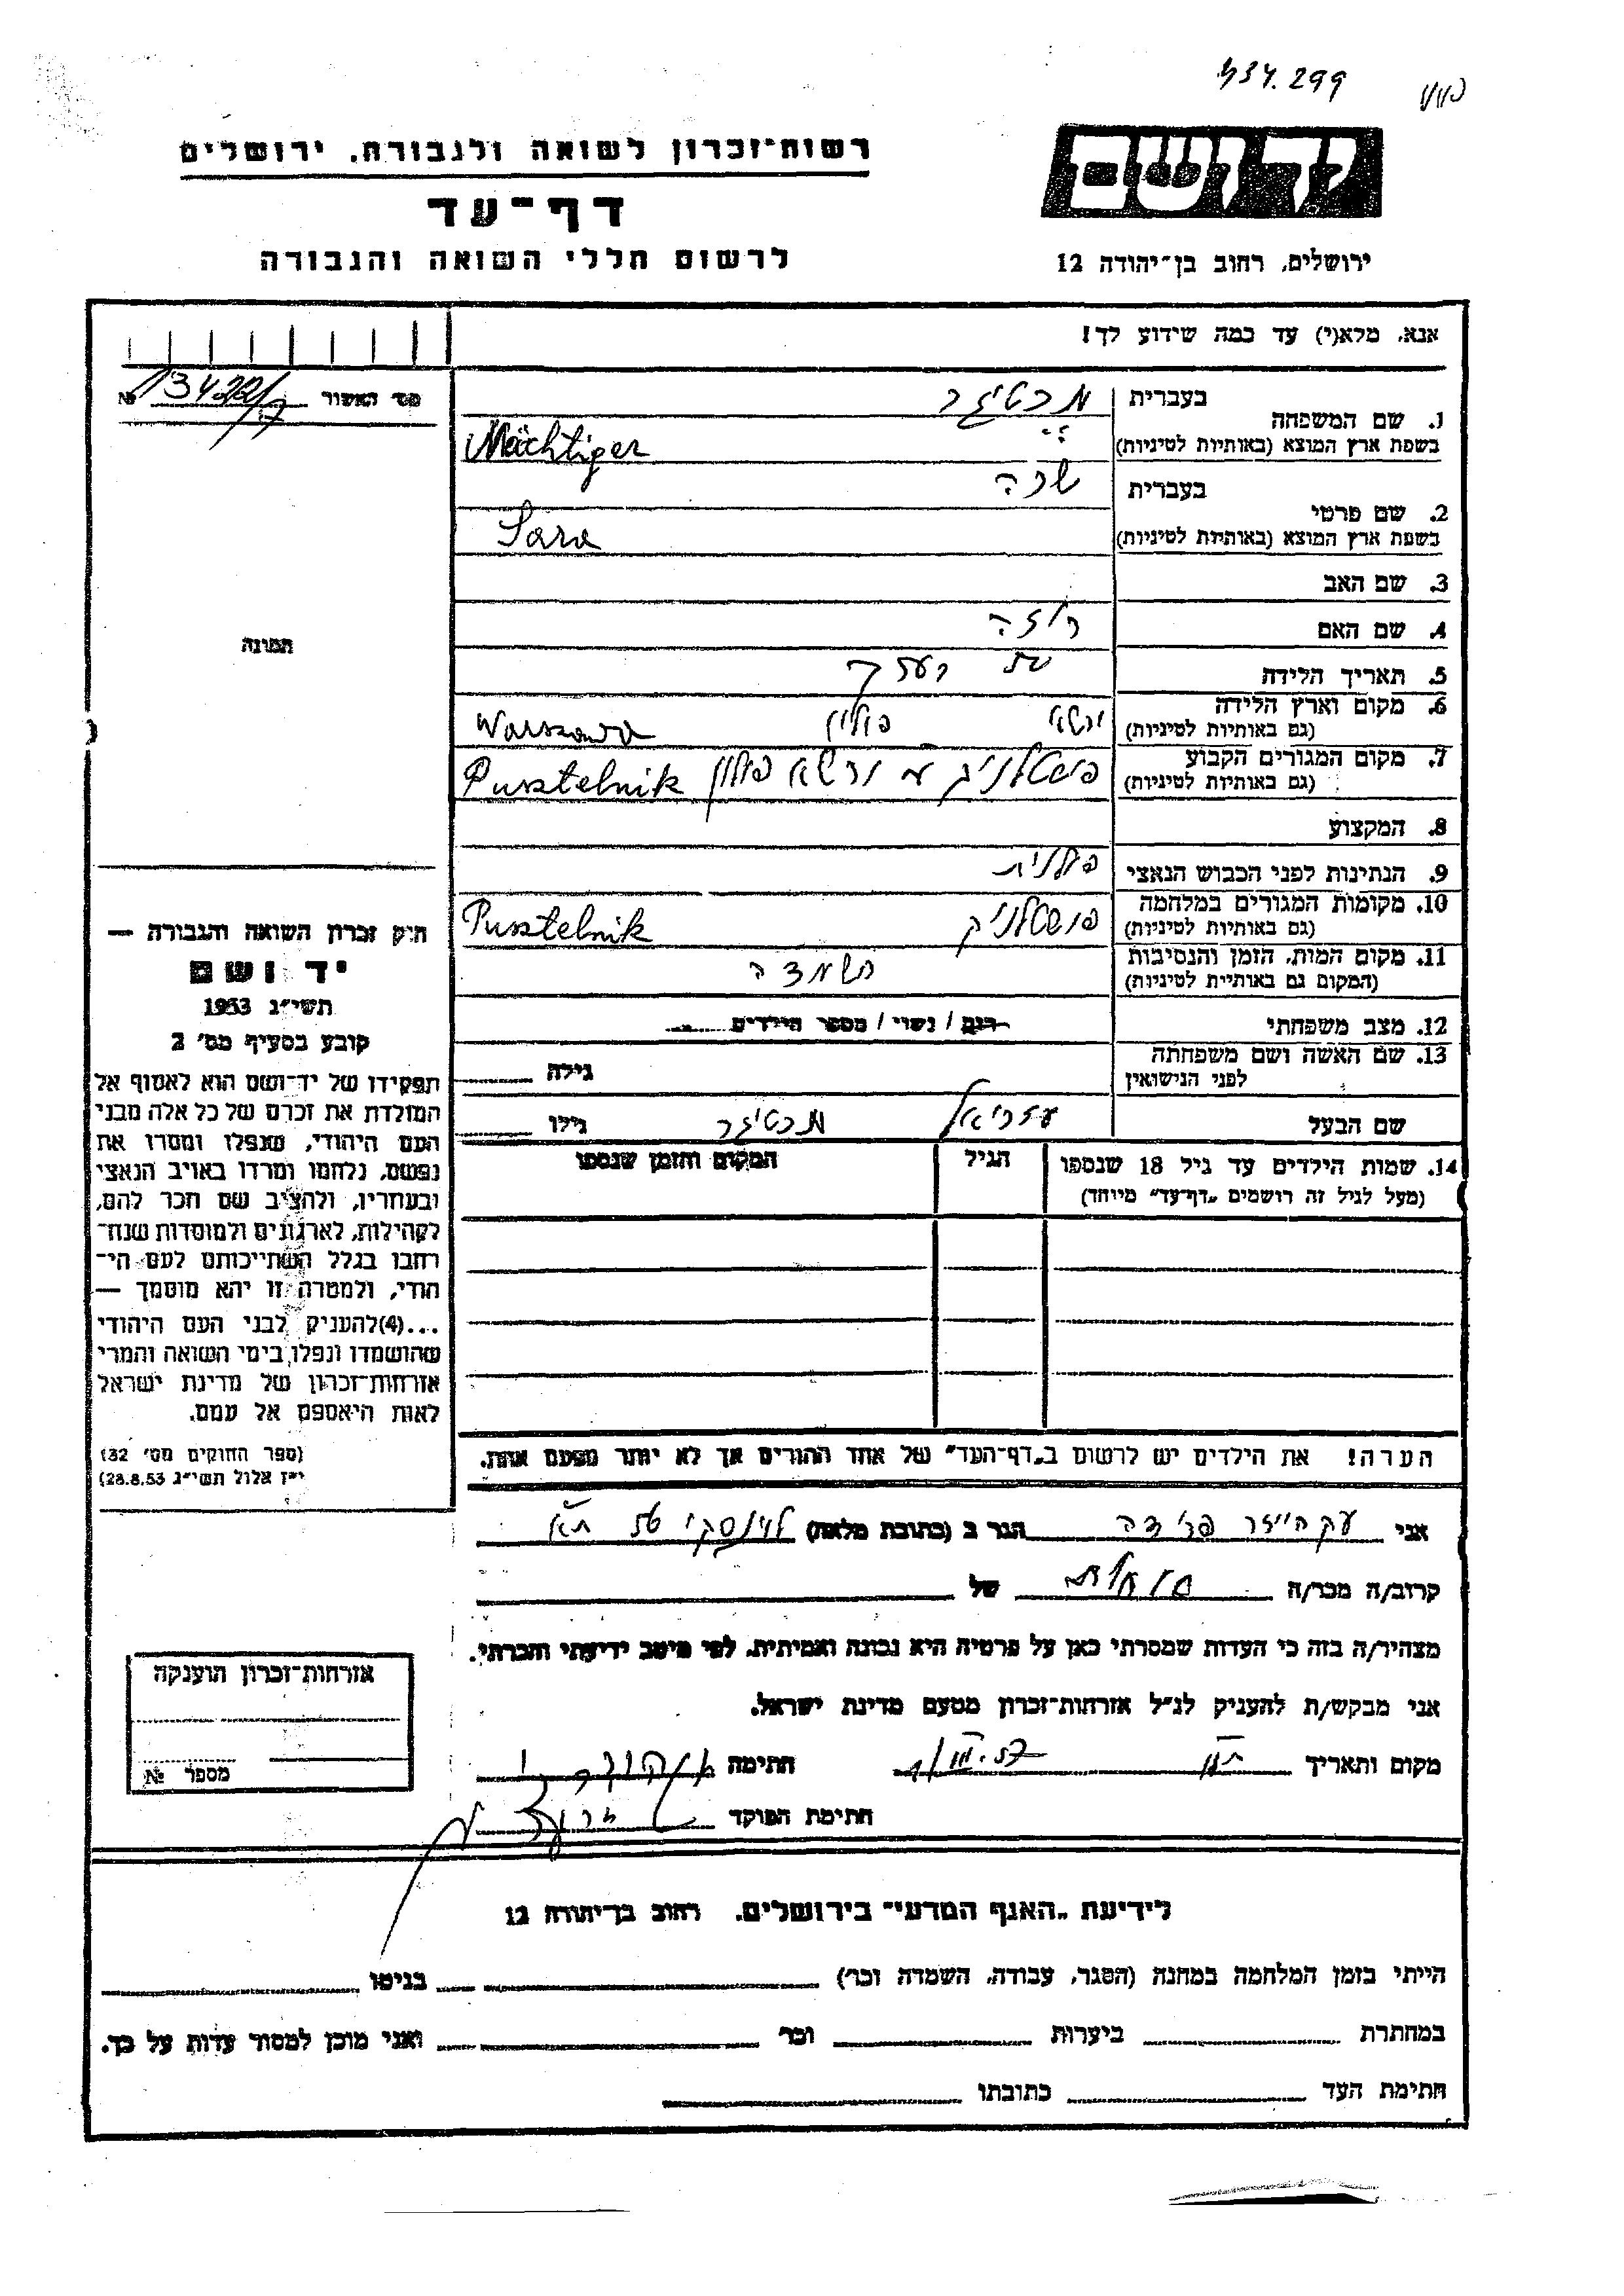 434.299
רשות־זכרון לשואה ולגבורה, ירושלים
יד ושם
דף־עד
לרשום חללי השואה והגבורה
ירושלים, רחוב בן־יהודה 12
אנא, מלא(י) עד כמה שידוע לך!
מס׳ האשור № 13422/7
תמונה
1. שם המשפחה בעברית מכטיגר
בשפת ארץ המוצא (באותיות לטיניות) Mächtiger
2. שם פרטי בעברית שרה
בשפת ארץ המוצא (באותיות לטיניות) Sara
3. שם האב
4. שם האם רוזה
5. תאריך הלידה
6. מקום וארץ הלידה ורשא פולין Warszawa
(גם באותיות לטיניות)
7. מקום המגורים הקבוע פוסטלניק ורשא פולין Pusztelnik
(גם באותיות לטיניות)
8. המקצוע
9. הנתינות לפני הכבוש הנאצי פולנית
10. מקומות המגורים במלחמה פוסטלניק Pusztelnik
(גם באותיות לטיניות)
11. מקום המות, הזמן והנסיבות השמדה
(המקום גם באותיות לטיניות)
12. מצב משפחתי רווק / נשוי / מספר הילדים
13. שם האשה ושם משפחתה גילה
לפני הנישואין
שם הבעל עזריאל מכטיגר גילו
14. שמות הילדים עד גיל 18 שנספו הגיל המקום והזמן שנספו
(מעל לגיל זה רושמים „דף־עד” מיוחד)
הערה! את הילדים יש לרשום ב„דף־העד” של אחד ההורים אך לא יותר מפעם אחת.
חוק זכרון השואה והגבורה —
יד ושם
תשי״ג 1953
קובע בסעיף מס׳ 2
תפקידו של יד־ושם הוא לאסוף אל
המולדת את זכרם של כל אלה מבני
העם היהודי, שנפלו ומסרו את
נפשם, נלחמו ומרדו באויב הנאצי
ובעוזריו, ולהציב שם וזכר להם,
לקהילות, לארגונים ולמוסדות שנח־
רבו בגלל השתייכותם לעם הי־
הודי, ולמטרה זו יהא מוסמך —
...(4) להעניק לבני העם היהודי
שהושמדו ונפלו בימי השואה והמרי
אזרחות־זכרון של מדינת ישראל
לאות היאספם אל עמם.
(ספר החוקים מס׳ 132
י״ז אלול תשי״ג 28.8.53)
אני הגר ב (כתובת מלאה) לוינסקי ת״א
קרוב/ה מכר/ה של
מצהיר/ה בזה כי העדות שמסרתי כאן על פרטיה היא נכונה ואמיתית, לפי מיטב ידיעתי והכרתי.
אני מבקש/ת להעניק לנ״ל אזרחות־זכרון מטעם מדינת ישראל.
מקום ותאריך ת״א חתימה
חתימת הפוקד
אזרחות־זכרון הוענקה
מספר №
לידיעת „האגף המדעי” בירושלים, רחוב בן־יהודה 12
הייתי בזמן המלחמה במחנה (הסגר, עבודה, השמדה וכר׳) בגיטו
במחתרת ביערות וכר׳ ואני מוכן למסור עדות על כך.
חתימת העד כתובתו